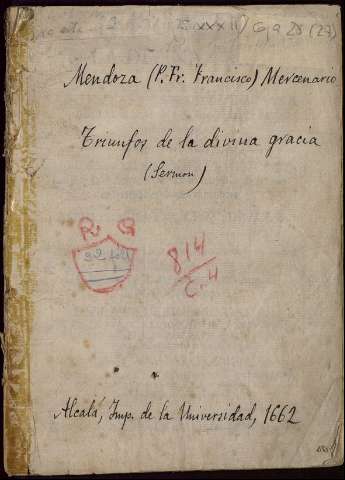 Mendoza (P. Fr. Francisco) Mercenario
Triunfos de la divina gracia
(Sermon)
R. G
814
C. 4
Alcalá, Imp. de la Universidad, 1662